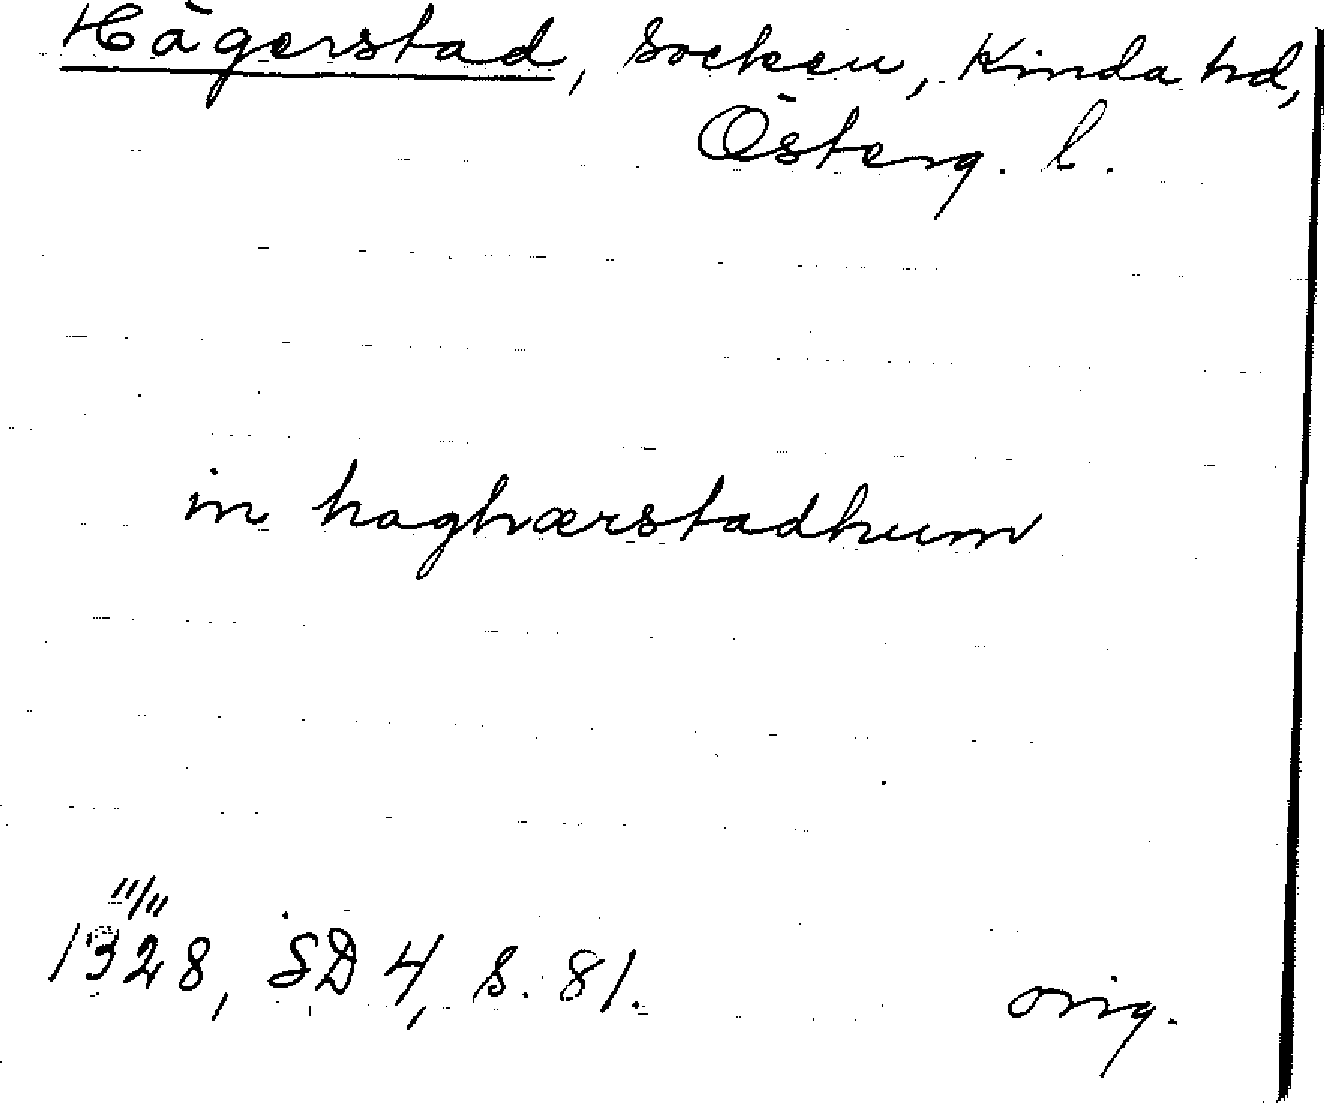 Hägerstad, socken, Kinda hd,
Österg. l.
in haghærstadhum
11/11
1328, SD 4, s. 81.
orig.